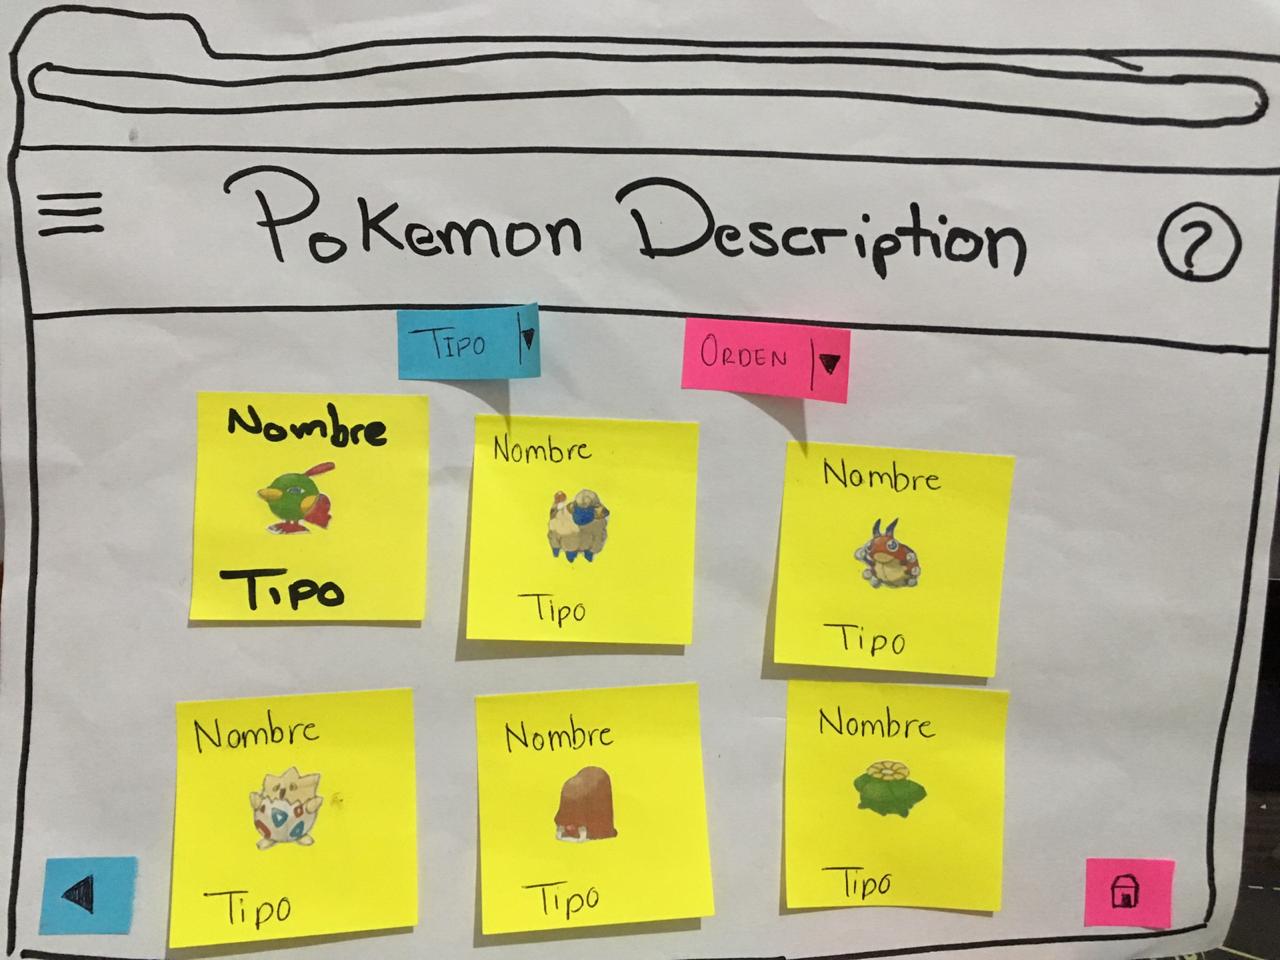 Pokemon Description
?
TIPO
ORDEN
Nombre
Tipo
Nombre
Tipo
Nombre
Tipo
Nombre
Tipo
Nombre
Tipo
Nombre
Tipo